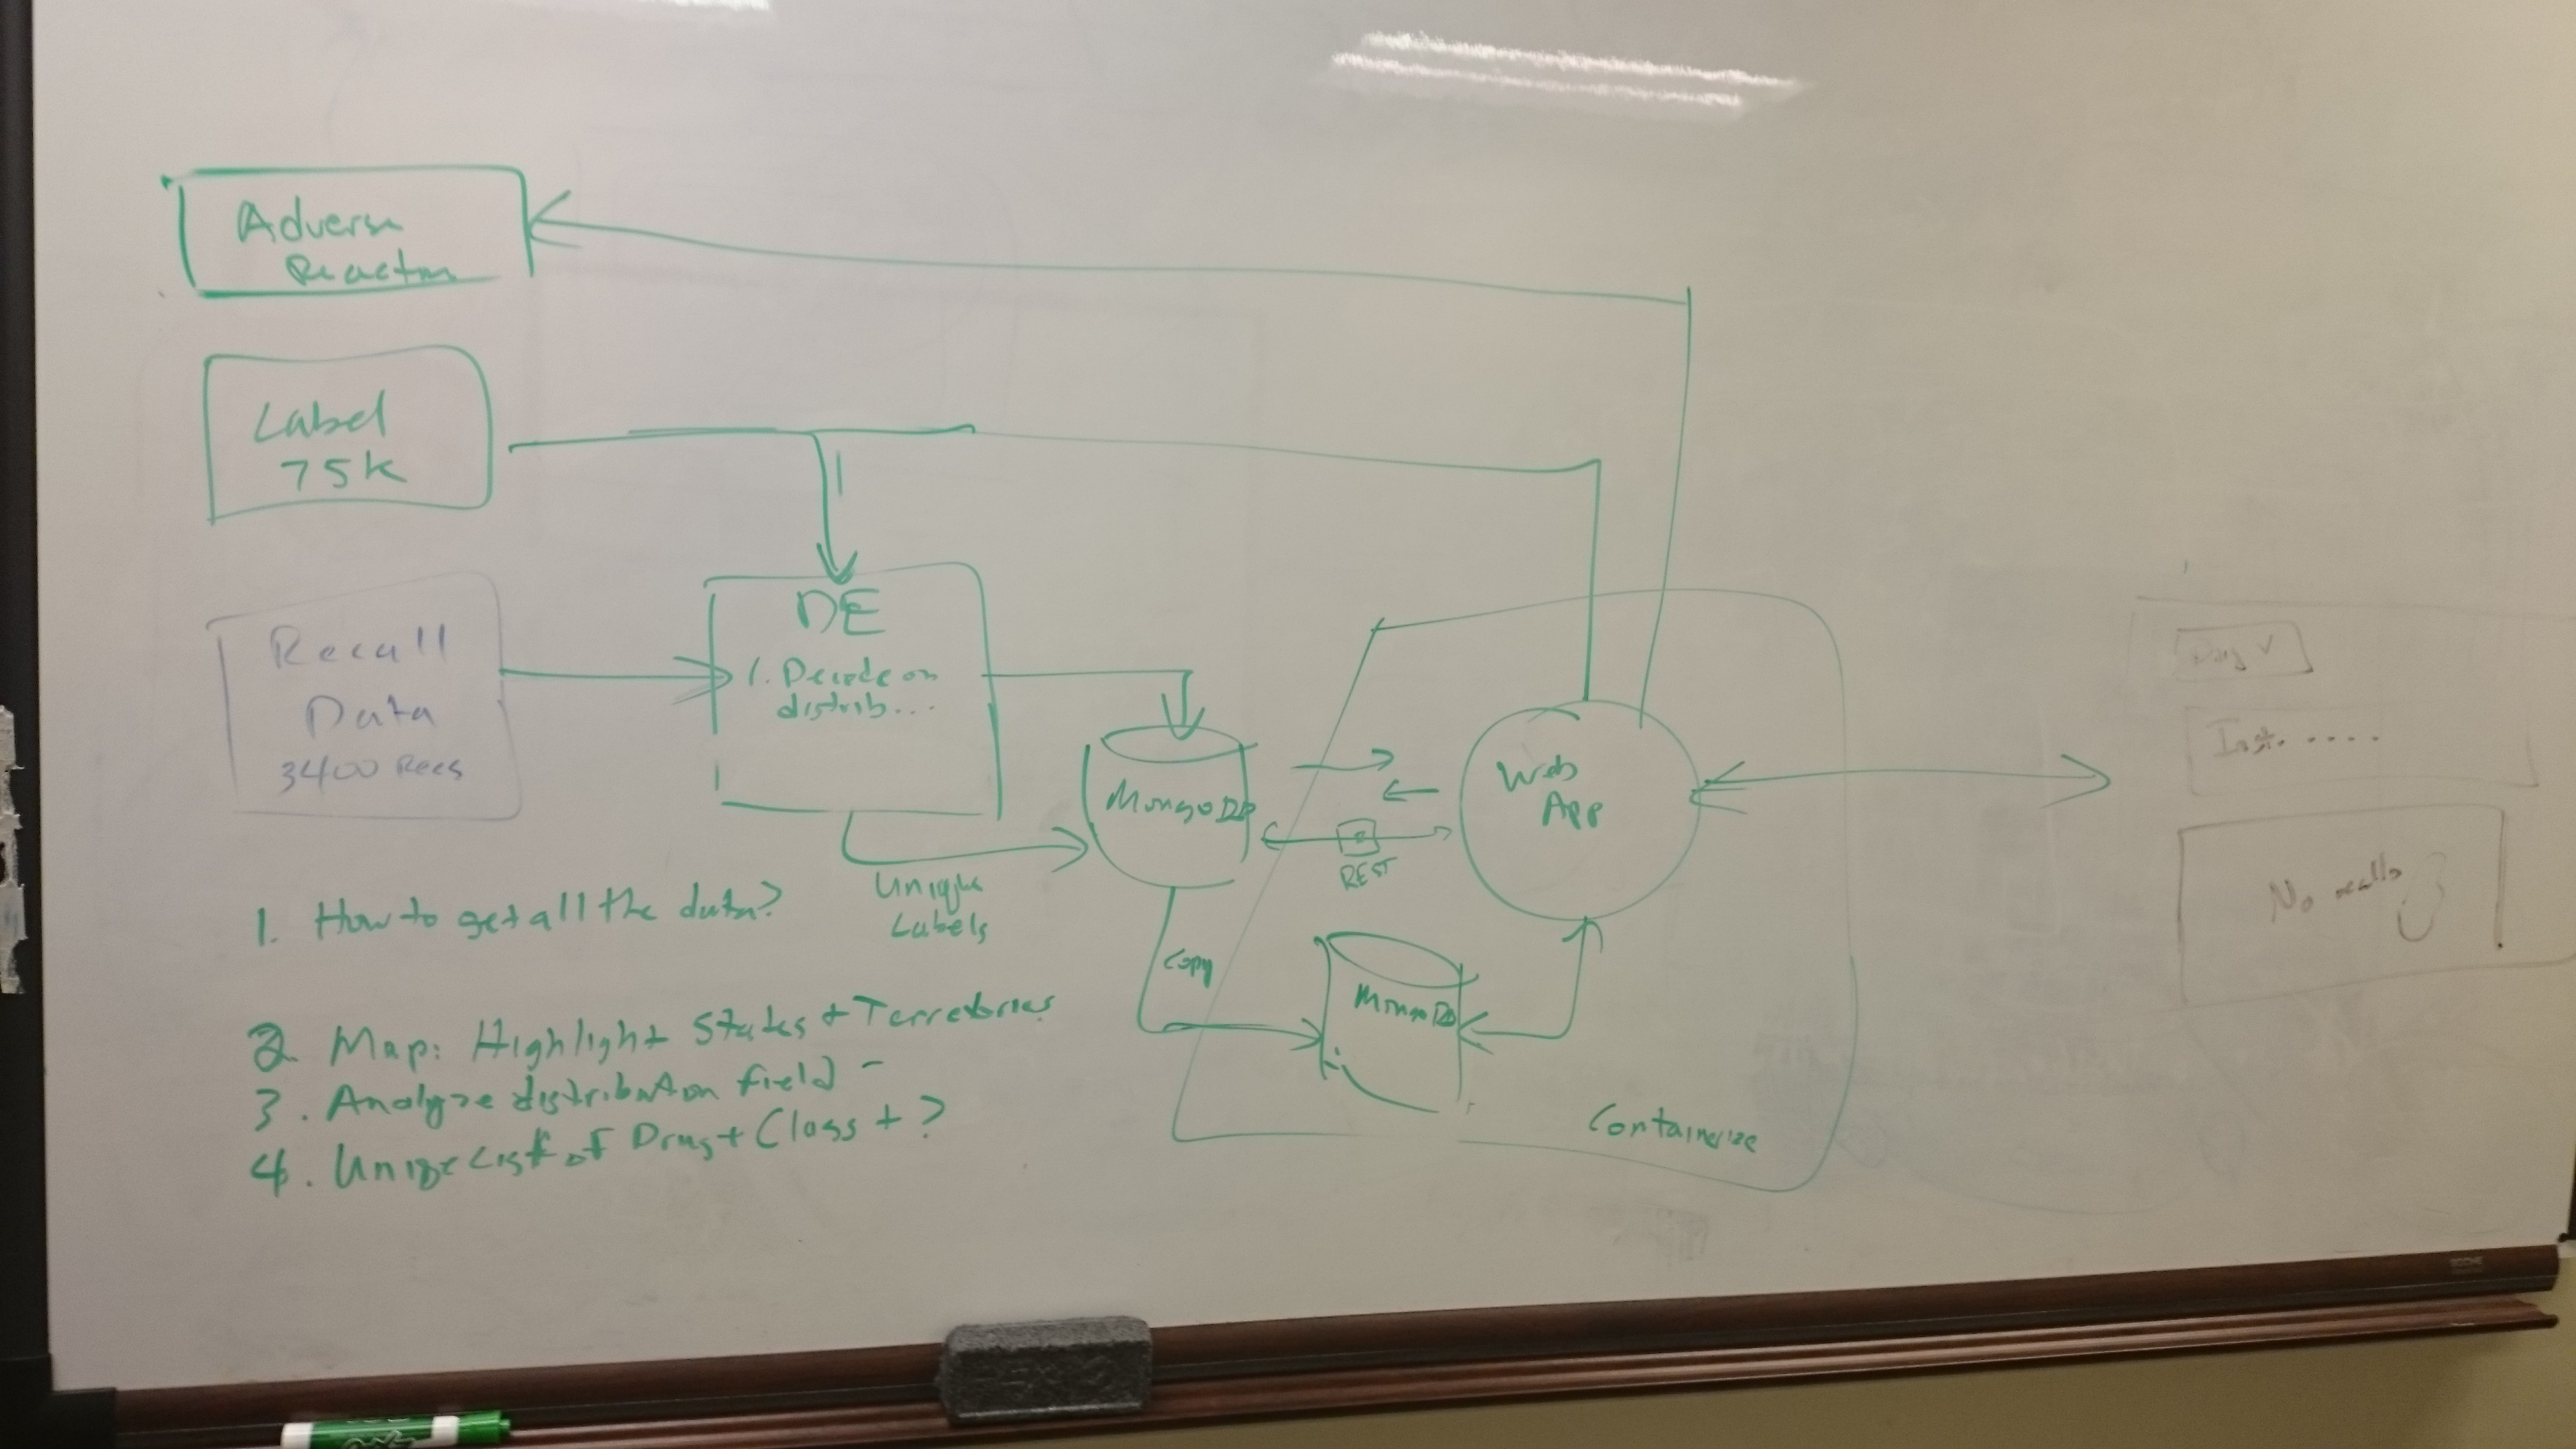 Adverse
Reaction
Label
75K
Recall
Data
3400 Recs
DE
1. Decode on
distrib...
Unique
Labels
MongoDB
REST
Web
App
Copy
MongoDB
Containerize
Inst.....
No recalls
1. How to get all the data?
2. Map: Highlight States + Terretories
3. Analyze distribution field -
4. Unique List of Drug + Class + ?